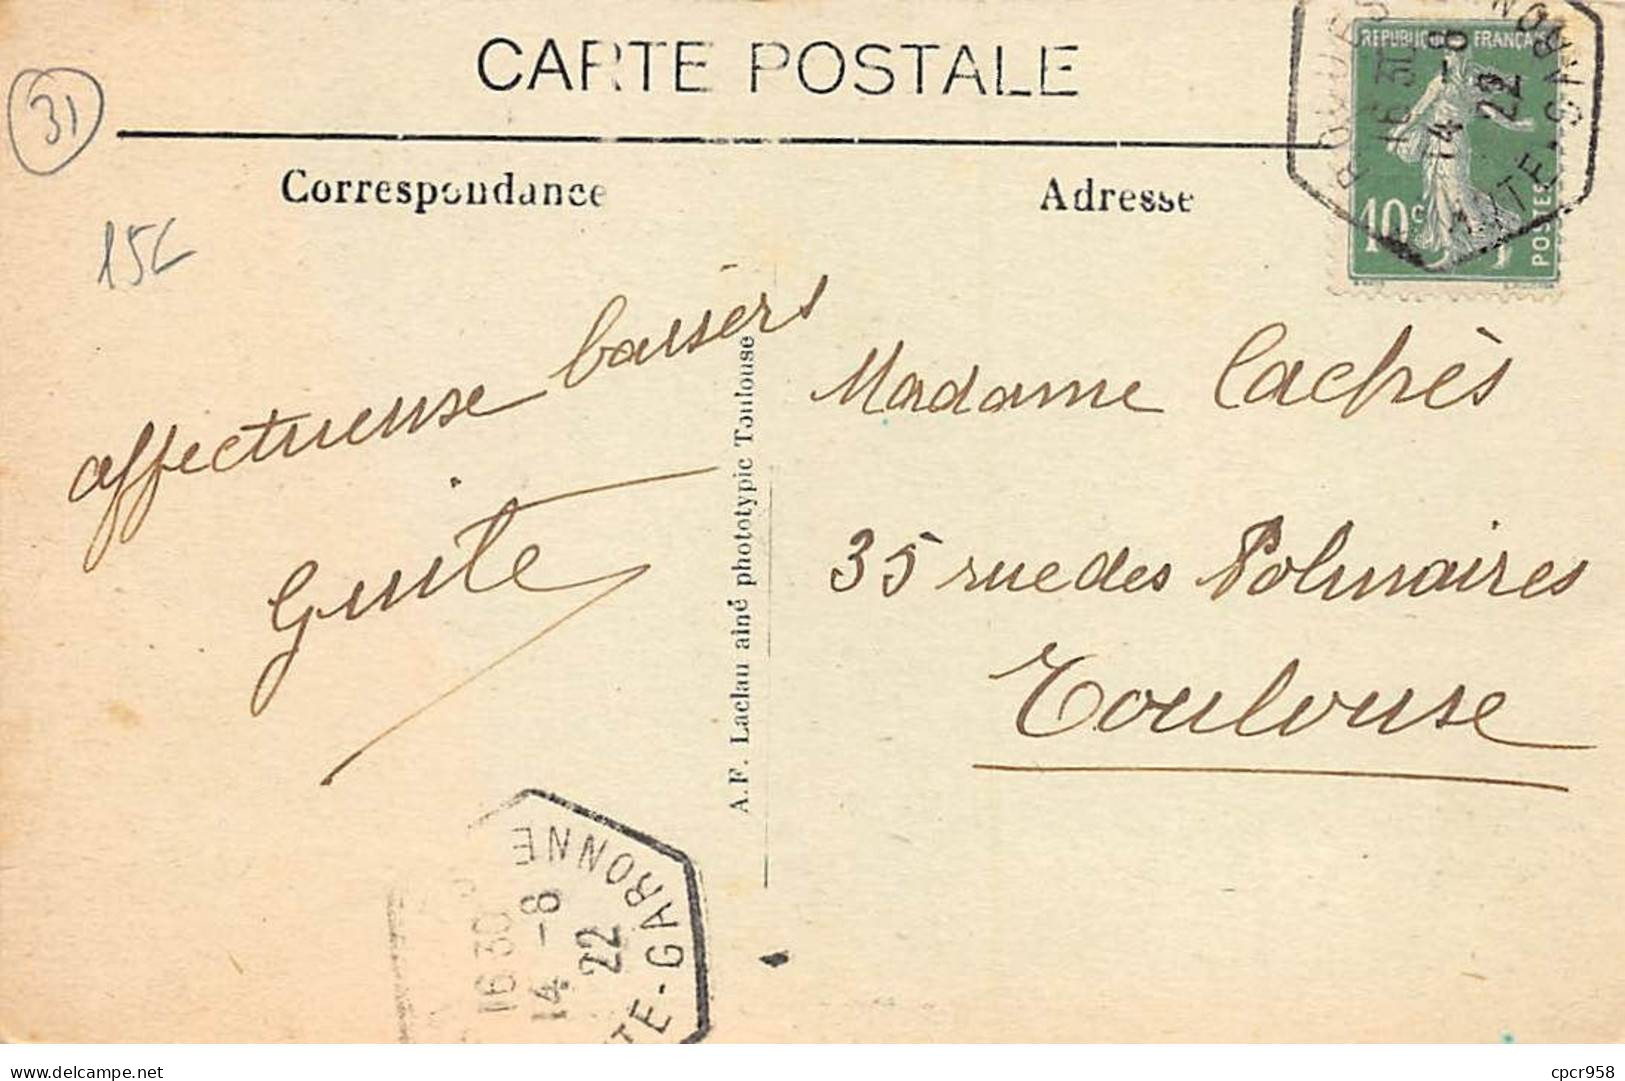 CARTE POSTALE
31
Correspondance
Adresse
15€
REPUBLIQUE FRANÇAISE
10c
POSTES
16 30
14 -8
22
HTE-GARONNE
affectueuse baisers
Guite
A.F. Laclau ainé phototypie Toulouse
Madame Cachès
35 rue des Polinaires
Toulouse
16 30
14 -8
22
TE-GARONNE
cpcr958